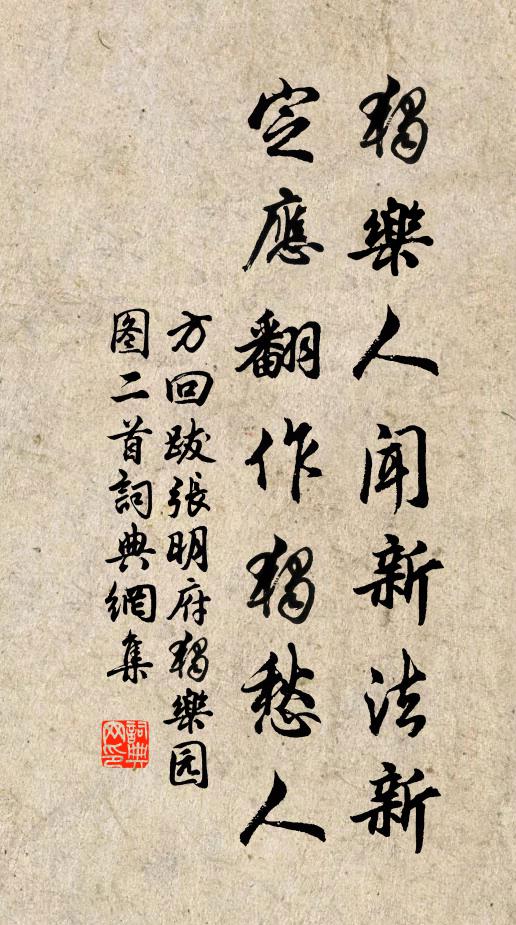 獨樂人聞新法新
定應翻作獨愁人
方回跋張明府獨樂园
图二首詞典網集
詞典网印